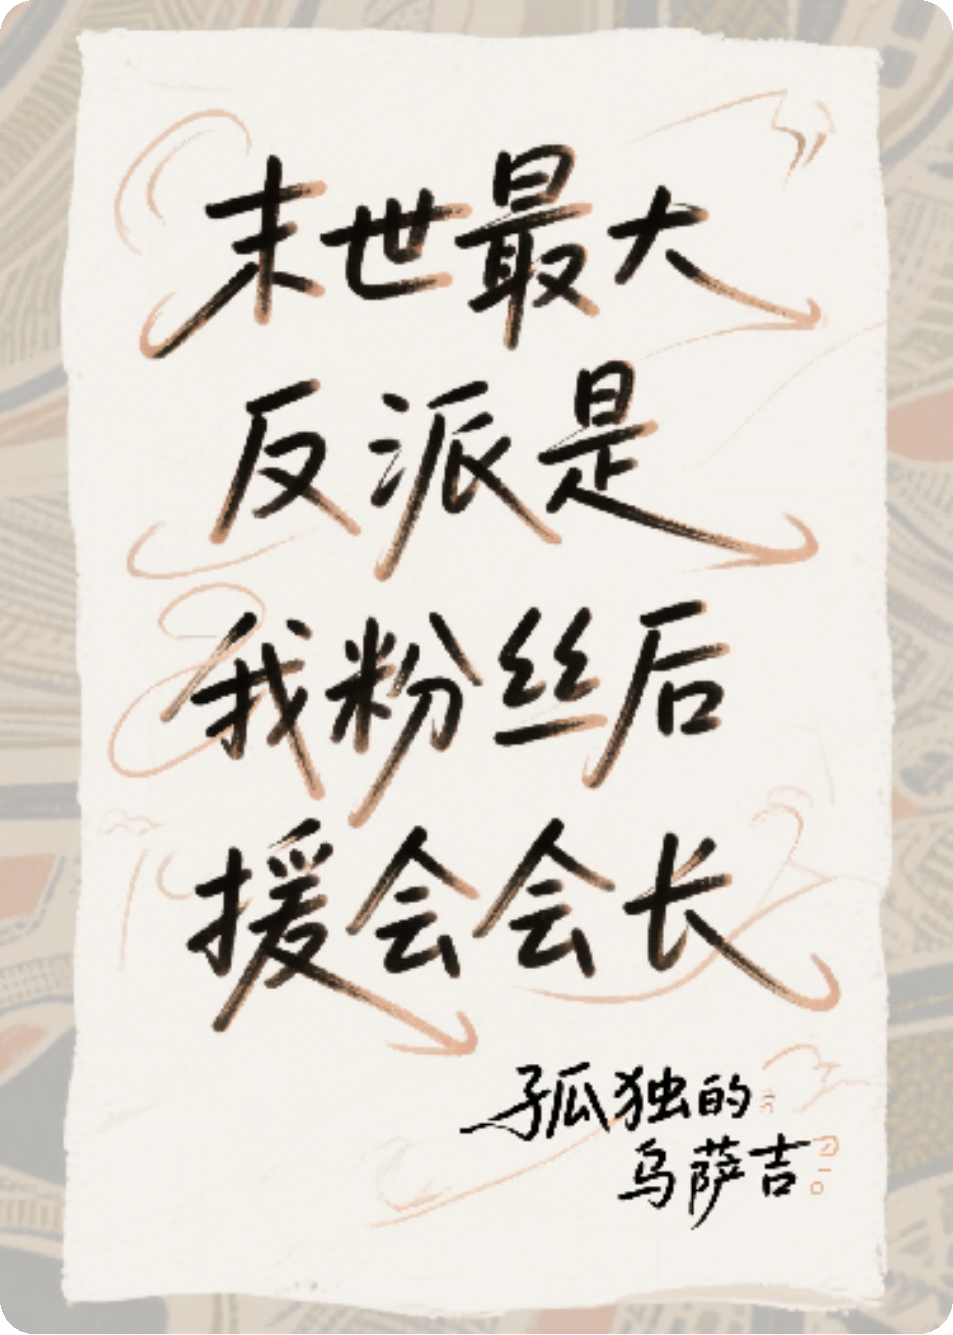 末世最大
反派是
我粉丝后
援会会长
孤独的
乌萨吉